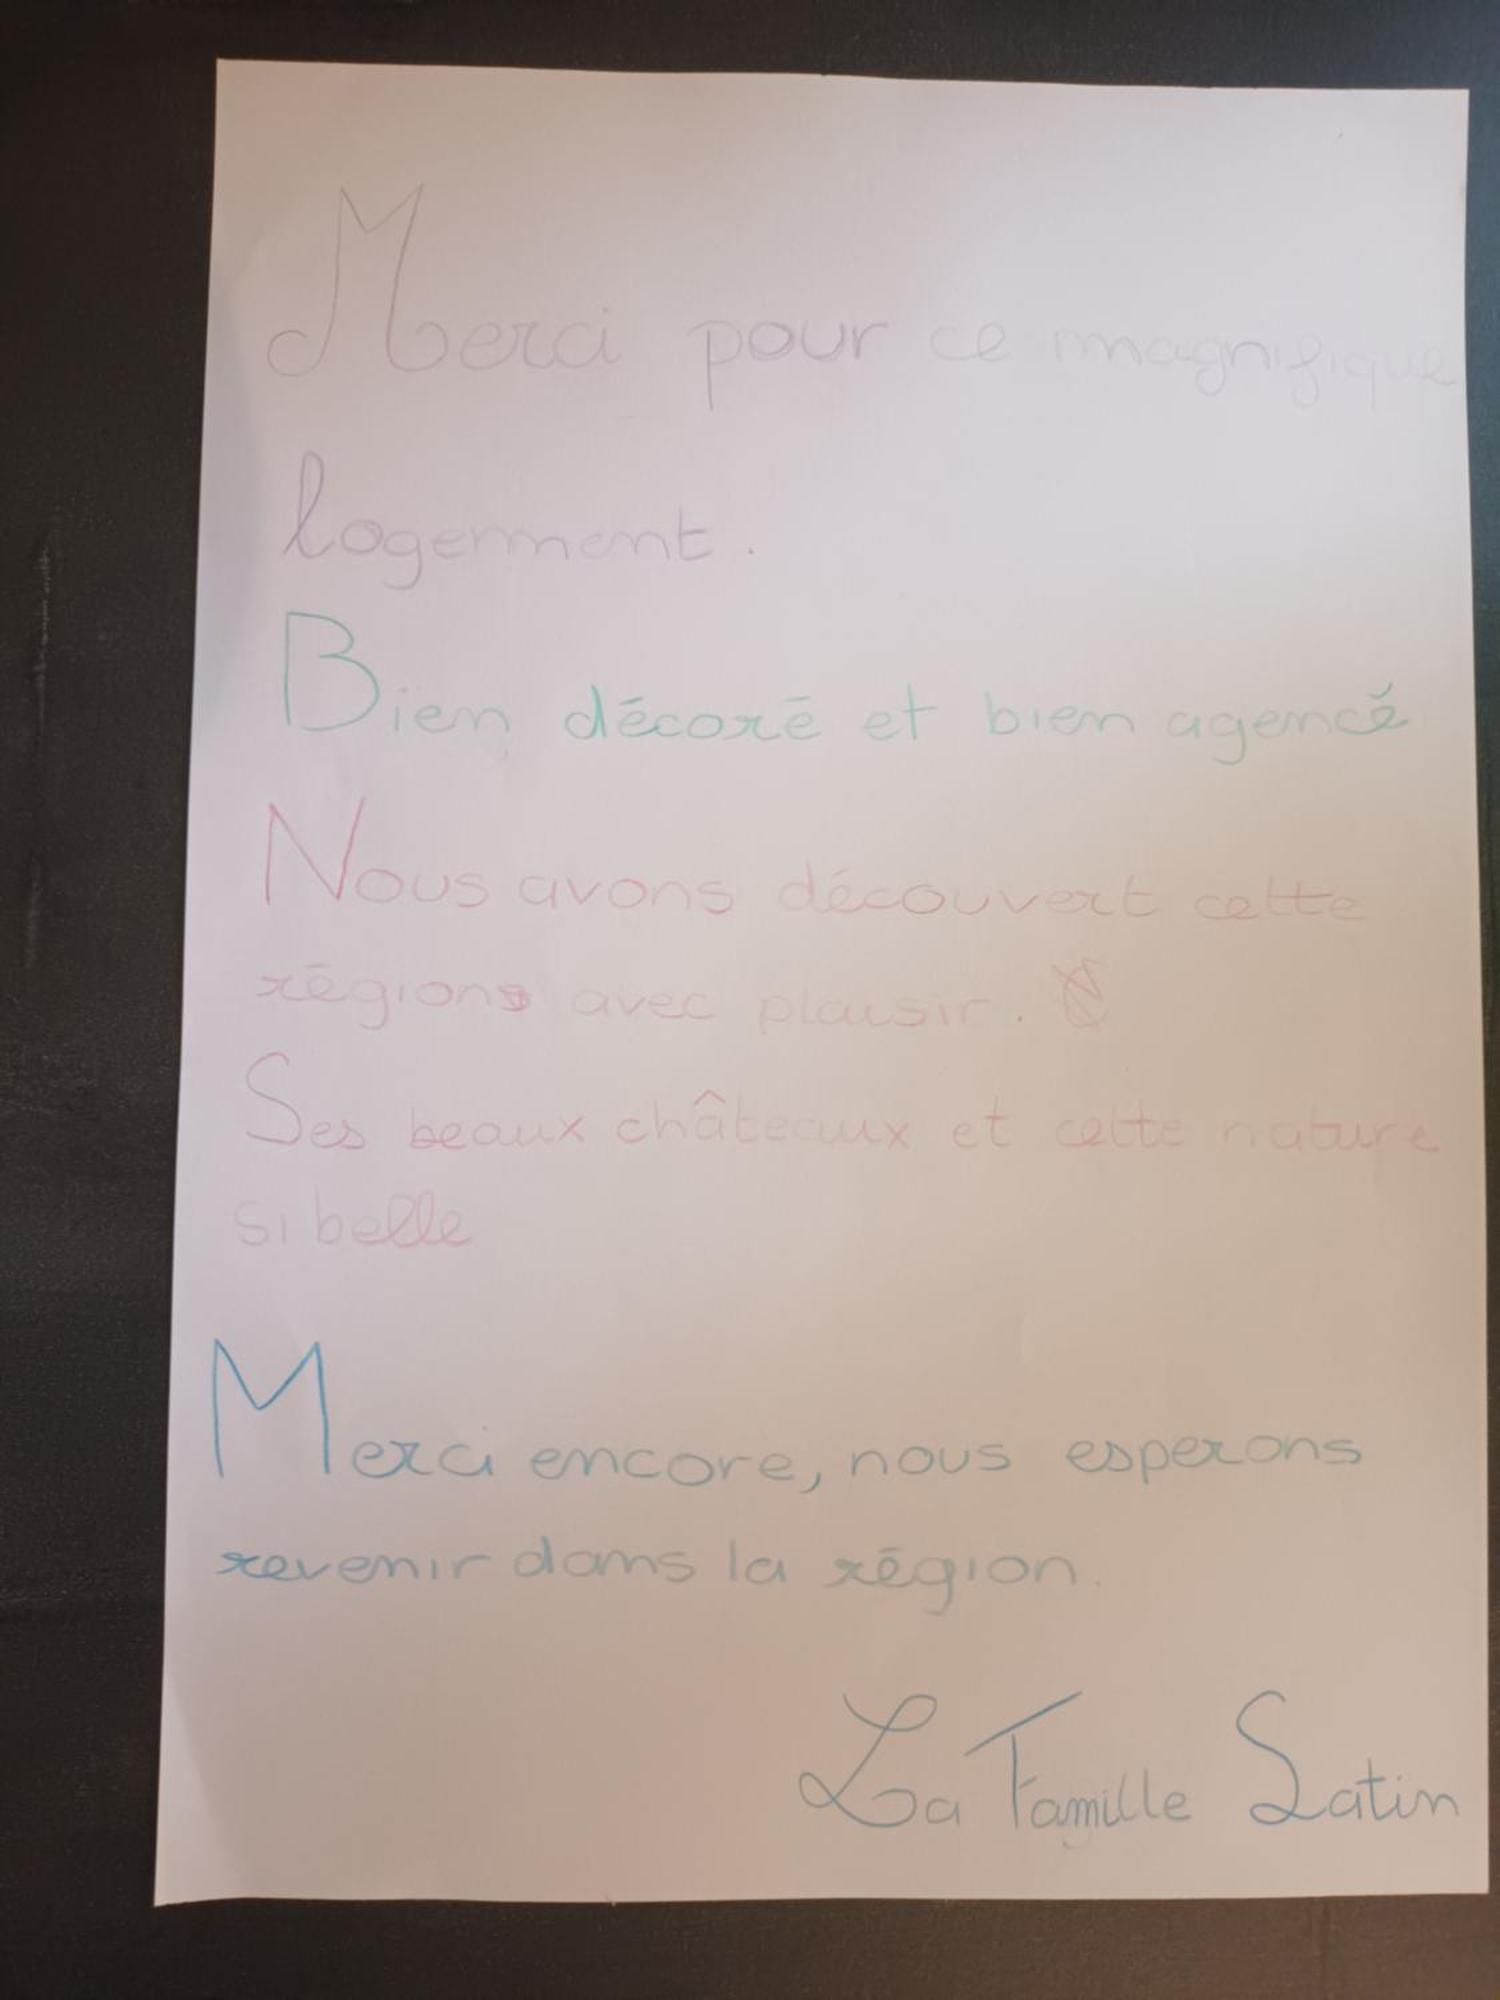 Merci pour ce magnifique
logement.
Bien décoré et bien agencé
Nous avons découvert cette
régions avec plaisir.
Ses beaux châteaux et cette nature
si belle
Merci encore, nous esperons
revenir dans la région.
La Famille Satin